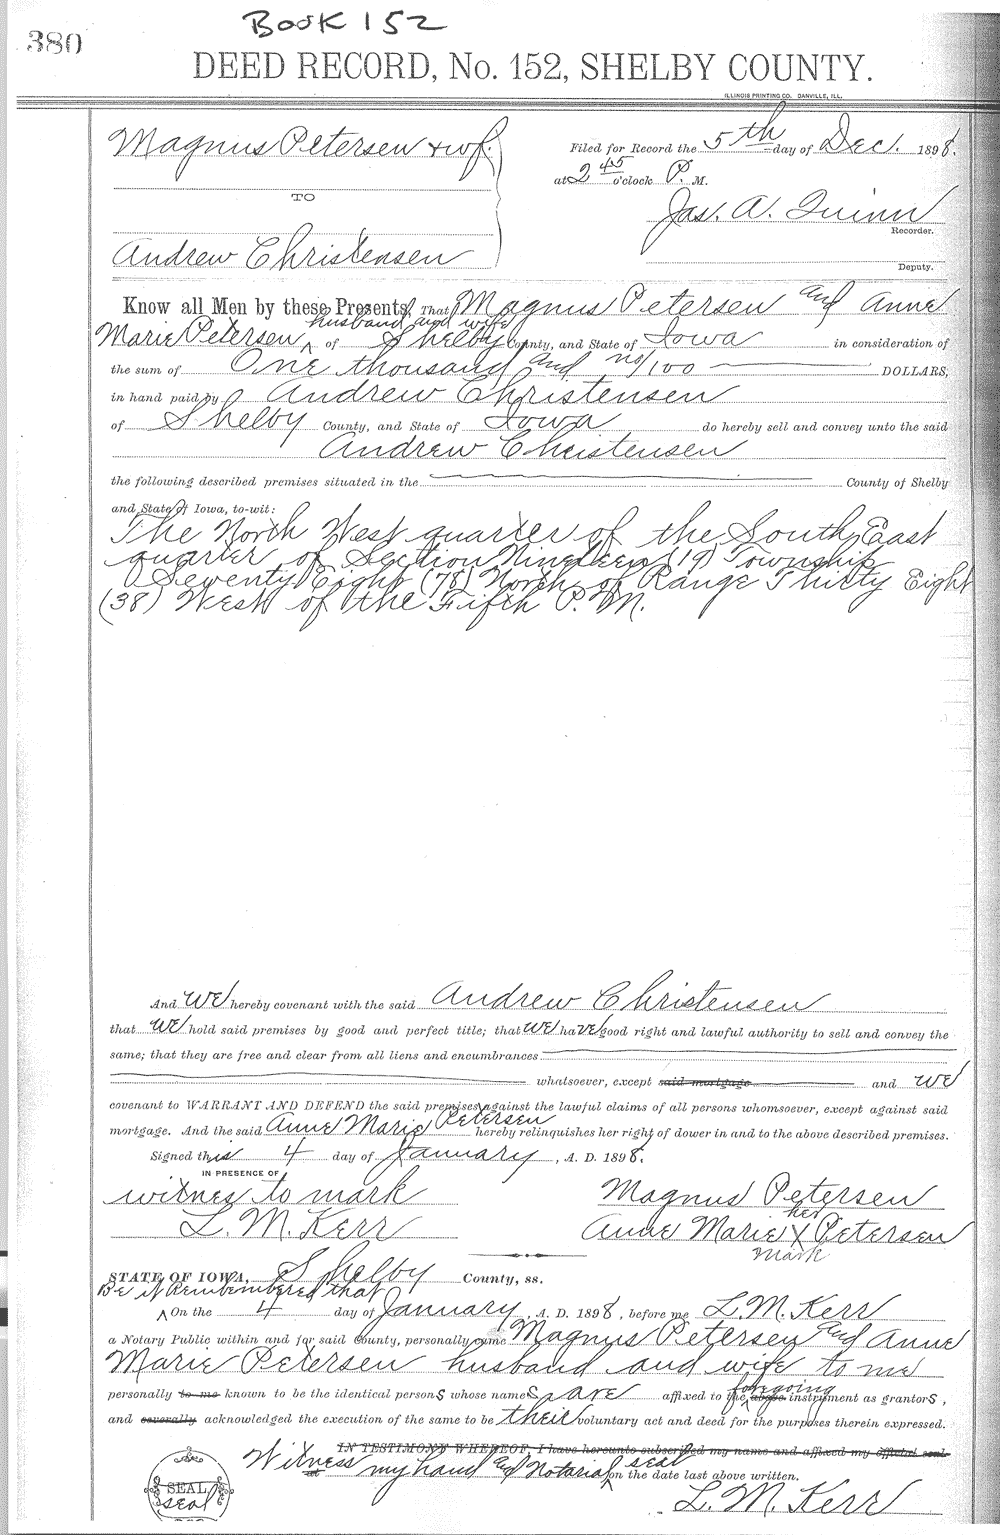 Book 152
380
DEED RECORD, No. 152, SHELBY COUNTY.
ILLINOIS PRINTING CO. DANVILLE, ILL.
Magnus Petersen & wf.
TO
Andrew Christensen
Filed for Record the 5th day of Dec. 1898.
at 2 45 o'clock P. M.
Jas. A. Quinn
Recorder.
Deputy.
Know all Men by these Presents, That Magnus Petersen and Anne
husband and wife
Marie Petersen ^ of Shelby County, and State of Iowa in consideration of
the sum of One thousand and no/100 DOLLARS,
in hand paid by Andrew Christensen
of Shelby County, and State of Iowa do hereby sell and convey unto the said
Andrew Christensen
the following described premises situated in the County of Shelby
and State of Iowa, to-wit:
The North West quarter of the South East
quarter of Section Nineteen (19) Township
Seventy Eight (78) North of Range Thirty Eight
(38) West of the Fifth P. M.
And we hereby covenant with the said Andrew Christensen
that we hold said premises by good and perfect title; that we have good right and lawful authority to sell and convey the
same; that they are free and clear from all liens and encumbrances
whatsoever, except said mortgage and we
covenant to WARRANT AND DEFEND the said premises against the lawful claims of all persons whomsoever, except against said
mortgage. And the said Anne Marie Petersen hereby relinquishes her right of dower in and to the above described premises.
Signed this 4 day of January, A. D. 1898.
IN PRESENCE OF
witnes to mark
L. M. Kerr
Magnus Petersen
her
Anne Marie X Petersen
mark
STATE OF IOWA, Shelby County, ss.
Be it Remembered that
^ On the 4 day of January, A. D. 1898, before me L. M. Kerr
a Notary Public within and for said County, personally came Magnus Petersen and Anne
Marie Petersen husband and wife to me
personally to me known to be the identical persons whose names are affixed to the ^ above foregoing instrument as grantors,
and severally acknowledged the execution of the same to be their voluntary act and deed for the purposes therein expressed.
IN TESTIMONY WHEREOF, I have hereunto subscribed my name and affixed my official seal
Witness my hand and Notarial seal ^ on the date last above written.
SEAL
seal
L. M. Kerr